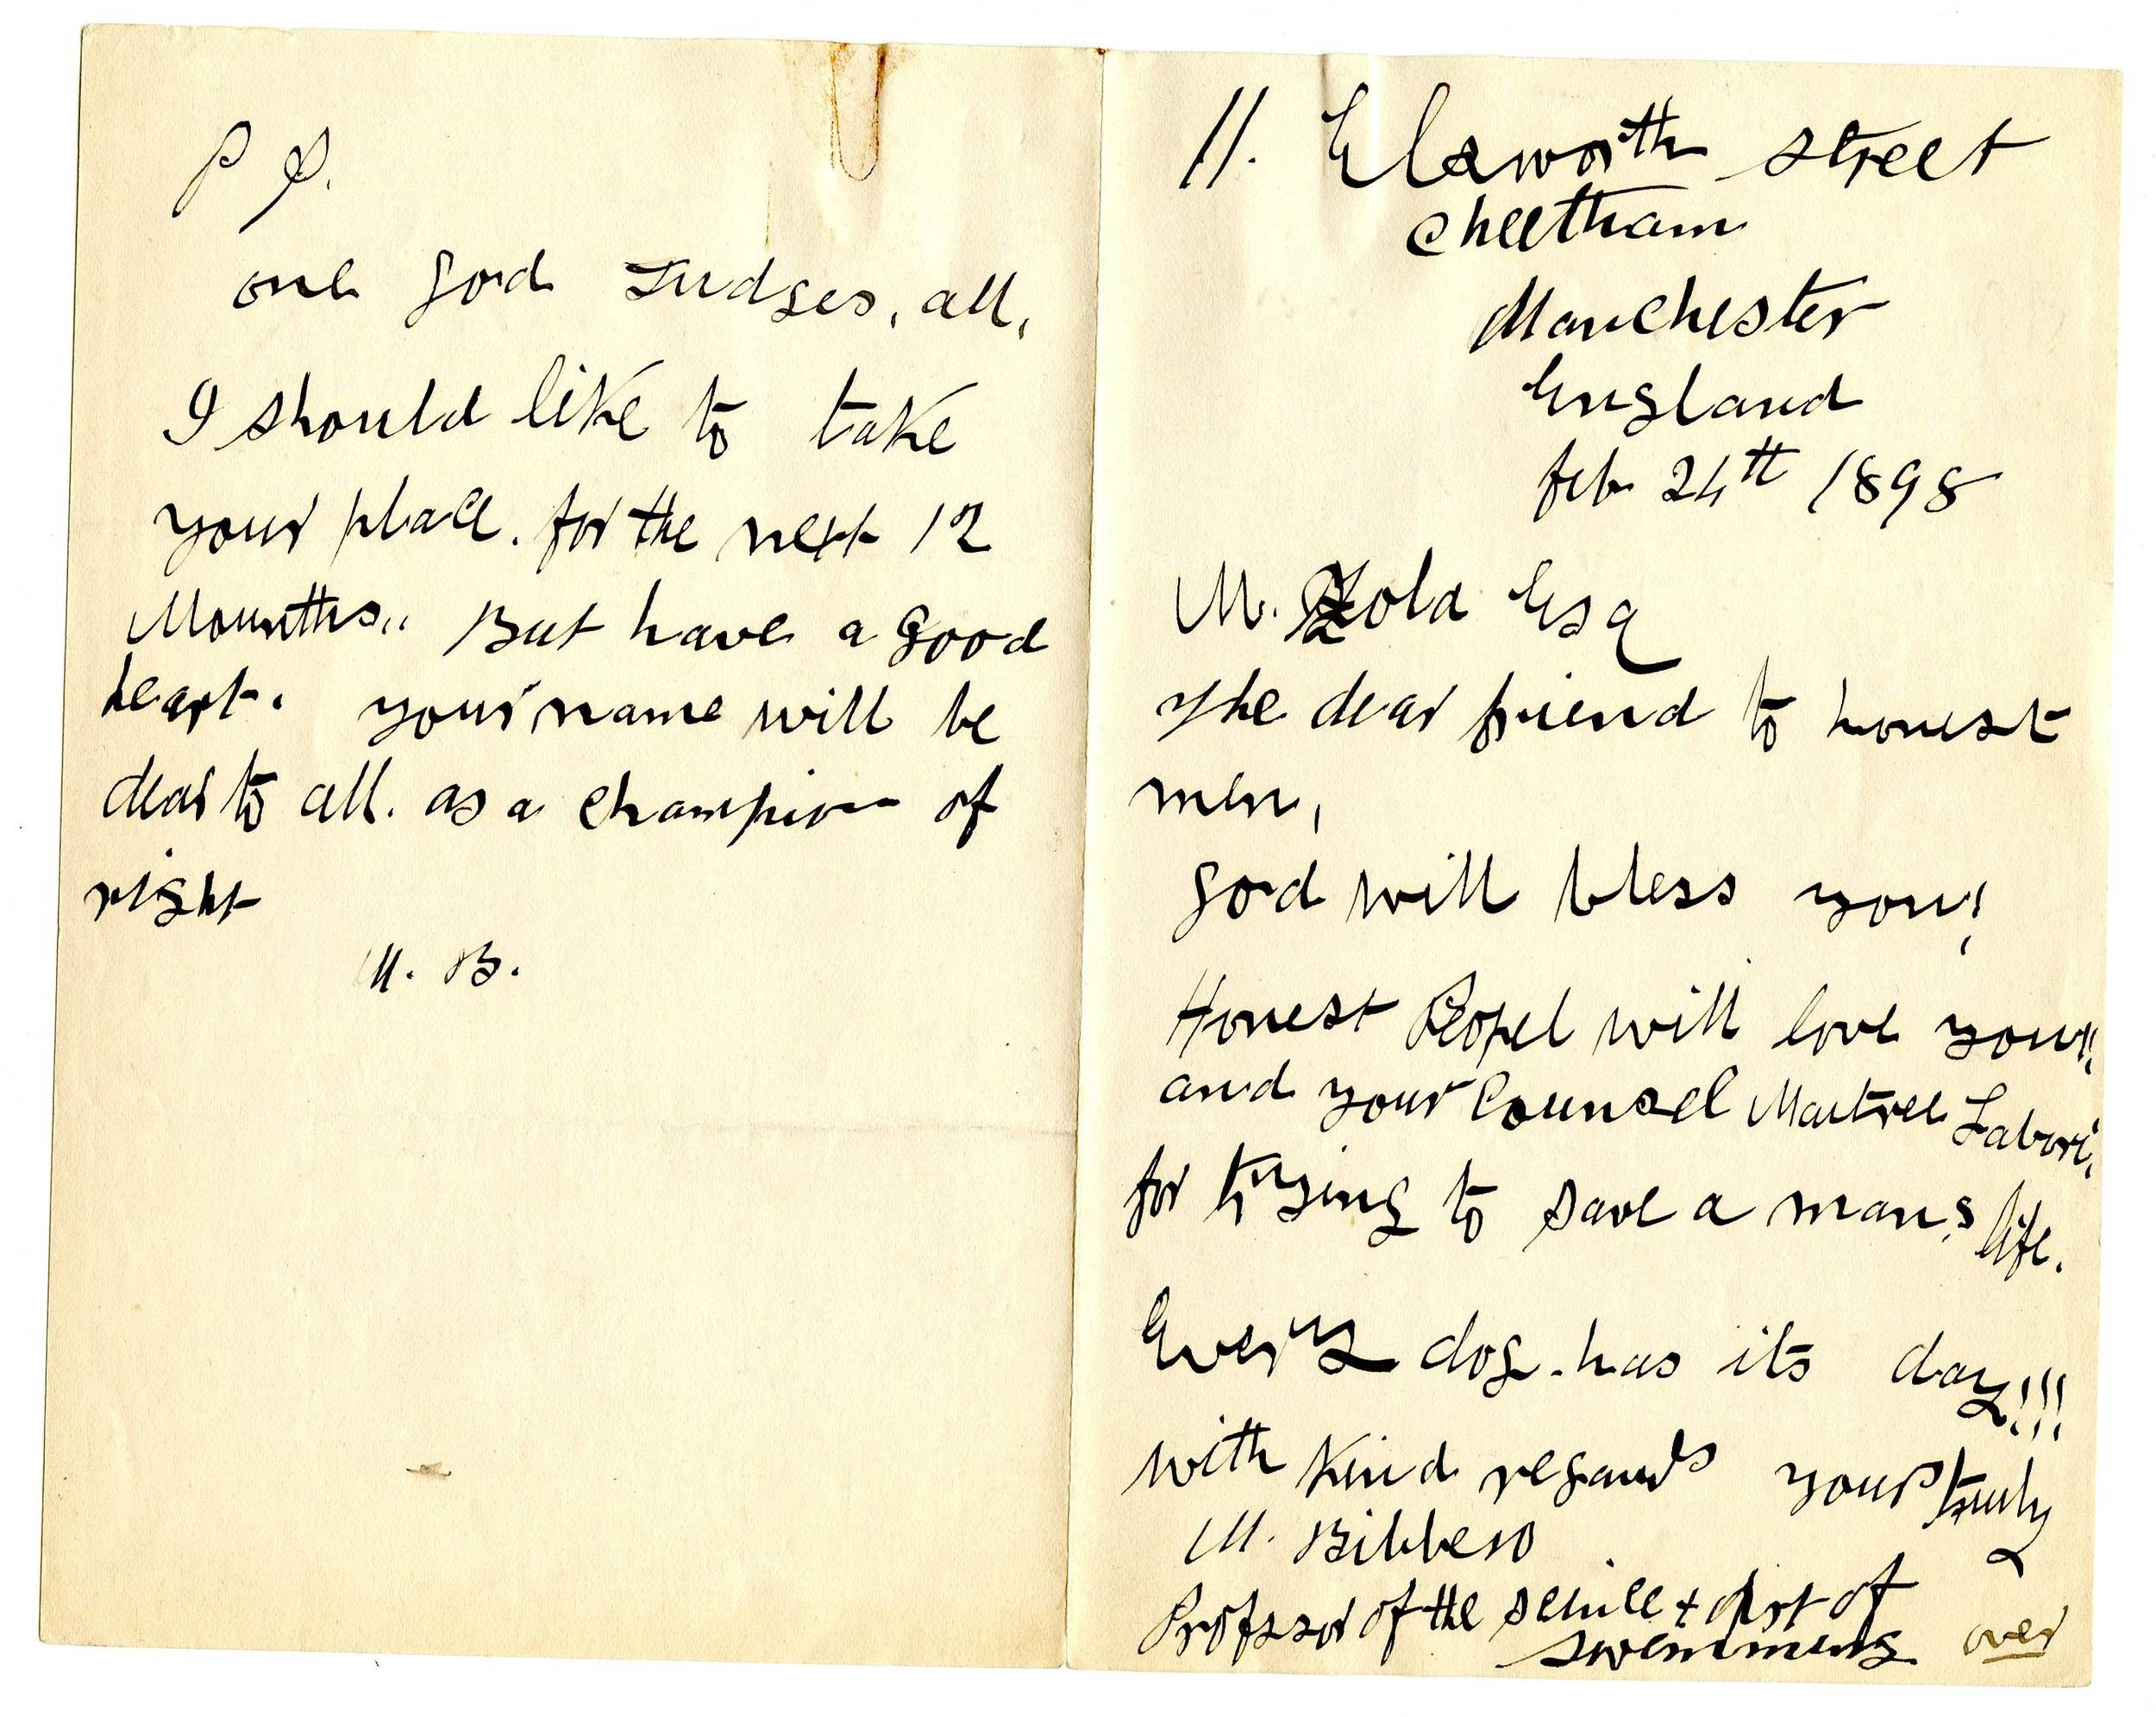 11. Elsworth street
Cheetham
Manchester
England
feb 24th 1898
M. Zola Esq
The dear friend to honest
men,
god will bless you!
Honest Peopel will love you!!
and your Counsel Maitree Labori,
for trying to save a mans life.
Every dog has its day!!!
with Kind regards yours truly
M. Bibbero
Professor of the science + Art of
swimming over
P S.
one god Judges, all,
I should like to take
your place. for the next 12
Mounths,, But have a good
heart. your name will be
dear to all. as a champion of
right
M. B.